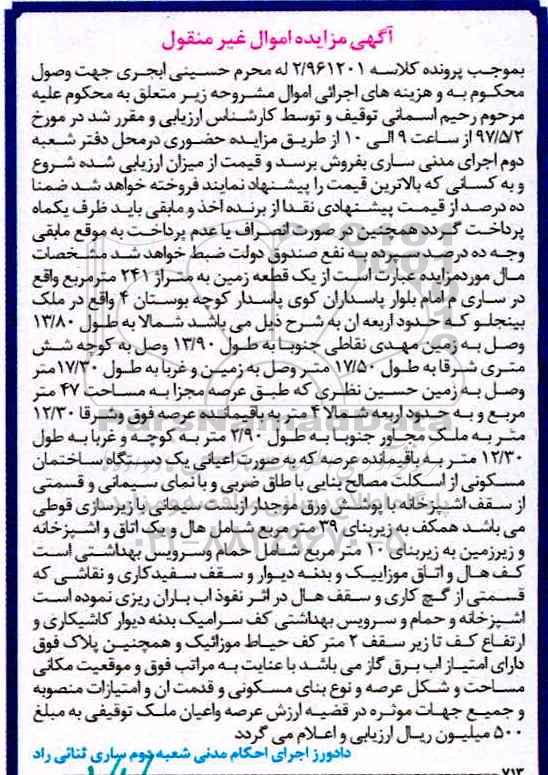 آگهی مزایده اموال غیر منقول
بموجب پرونده کلاسه ۲/۹۶۱۲۰۱ له محرم حسینی ابجری جهت وصول
محکوم به و هزینه های اجرائی اموال مشروحه زیر متعلق به محکوم علیه
مرحوم رحیم اسمانی توقیف و توسط کارشناس ارزیابی و مقرر شد در مورخ
۹۷/۵/۲ از ساعت ۹ الی ۱۰ از طریق مزایده حضوری درمحل دفتر شعبه
دوم اجرای مدنی ساری بفروش برسد و قیمت از میزان ارزیابی شده شروع
و به کسانی که بالاترین قیمت را پیشنهاد نمایند فروخته خواهد شد ضمنا
ده درصد از قیمت پیشنهادی نقدا از برنده اخذ و مابقی باید ظرف یکماه
پرداخت گردد همچنین در صورت انصراف یا عدم پرداخت به موقع مابقی
وجه ده درصد سپرده به نفع صندوق دولت ضبط خواهد شد مشخصات
مال موردمزایده عبارت است از یک قطعه زمین به متراژ ۲۴۱ مترمربع واقع
در ساری م امام بلوار پاسداران کوی پاسدار کوچه بوستان ۴ واقع در ملک
بینجلو که حدود اربعه ان به شرح ذیل می باشد شمالا به طول ۱۳/۸۰
وصل به زمین مهدی نقاطی جنوبا به طول ۱۳/۹۰ وصل به کوچه شش
متری شرقا به طول ۱۷/۵۰ متر وصل به زمین و غربا به طول ۱۷/۳۰ متر
وصل به زمین حسین نظری که طبق عرصه مجزا به مساحت ۴۷ متر
مربع و به حدود اربعه شمالا ۴ متر به باقیمانده عرصه فوق وشرقا ۱۲/۳۰
متر به ملک مجاور جنوبا به طول ۲/۹۰ متر به کوچه و غربا به طول
۱۲/۳۰ متر به باقیمانده عرصه که به صورت اعیانی یک دستگاه ساختمان
مسکونی از اسکلت مصالح بنایی با طاق ضربی و با نمای سیمانی و قسمتی
از سقف اشپزخانه با پوشش ورق موجدار ازبست سیمانی با زیرسازی قوطی
می باشد همکف به زیربنای ۳۹ متر مربع شامل هال و یک اتاق و اشپزخانه
و زیرزمین به زیربنای ۱۰ متر مربع شامل حمام وسرویس بهداشتی است
کف هال و اتاق موزاییک و بدنه دیوار و سقف سفیدکاری و نقاشی که
قسمتی از گچ کاری و سقف هال در اثر نفوذ اب باران ریزی نموده است
اشپزخانه و حمام و سرویس بهداشتی کف سرامیک بدنه دیوار کاشیکاری و
ارتفاع کف تا زیر سقف ۲ متر کف حیاط موزائیک و همچنین پلاک فوق
دارای امتیاز اب برق گاز می باشد با عنایت به مراتب فوق و موقعیت مکانی
مساحت و شکل عرصه و نوع بنای مسکونی و قدمت ان و امتیازات منصوبه
و جمیع جهات موثره در قضیه ارزش عرصه واعیان ملک توقیفی به مبلغ
۵۰۰ میلیون ریال ارزیابی و اعلام می گردد
دادورز اجرای احکام مدنی شعبه دوم ساری ثنائی راد
۷۱۳
ParsNamadData
۰۲۱-۸۸۳۴۹۶۷۰-۵